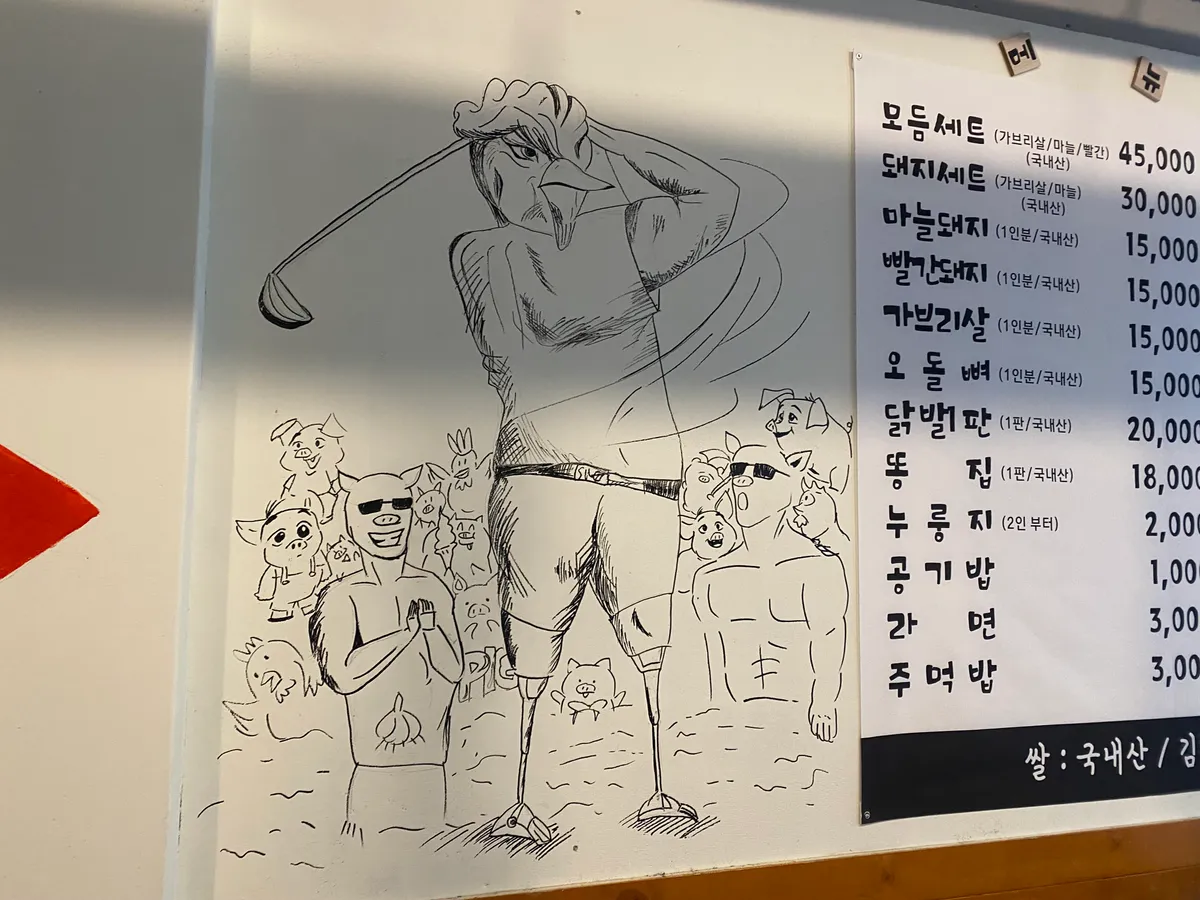 메 뉴
모듬세트 (가브리살/마늘/빨간) (국내산) 45,000
돼지세트 (가브리살/마늘) (국내산) 30,000
마늘돼지 (1인분/국내산) 15,000
빨간돼지 (1인분/국내산) 15,000
가브리살 (1인분/국내산) 15,000
오돌뼈 (1인분/국내산) 15,000
닭발1판 (1판/국내산) 20,000
똥집 (1판/국내산) 18,000
누룽지 (2인 부터) 2,00
공기밥 1,00
라면 3,00
주먹밥 3,00
쌀 : 국내산 / 김